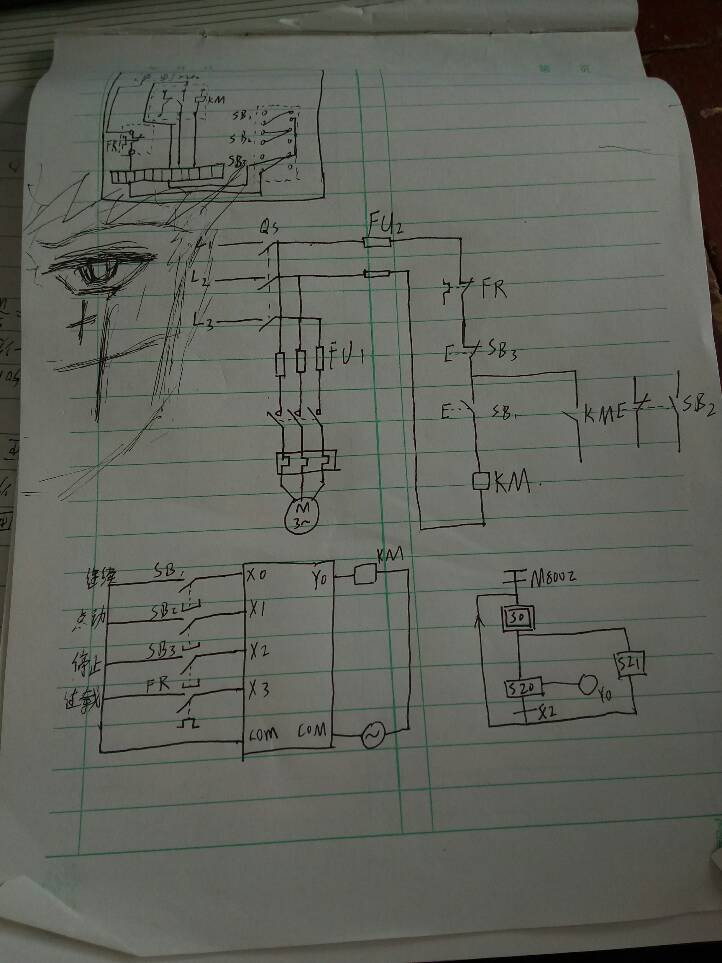 KM
SB1
SB2
FR
SB3
QS
FU2
L1
L2
L3
FR
SB3
FU1
SB1
KM
E
SB2
E
E
KM
M
3~
KM
M8002
连续 SB1 X0 Y0
S0
点动 SB2 X1
停止 SB3 X2
S21
过载 FR X3
S20
Y0
X2
COM COM
第 页